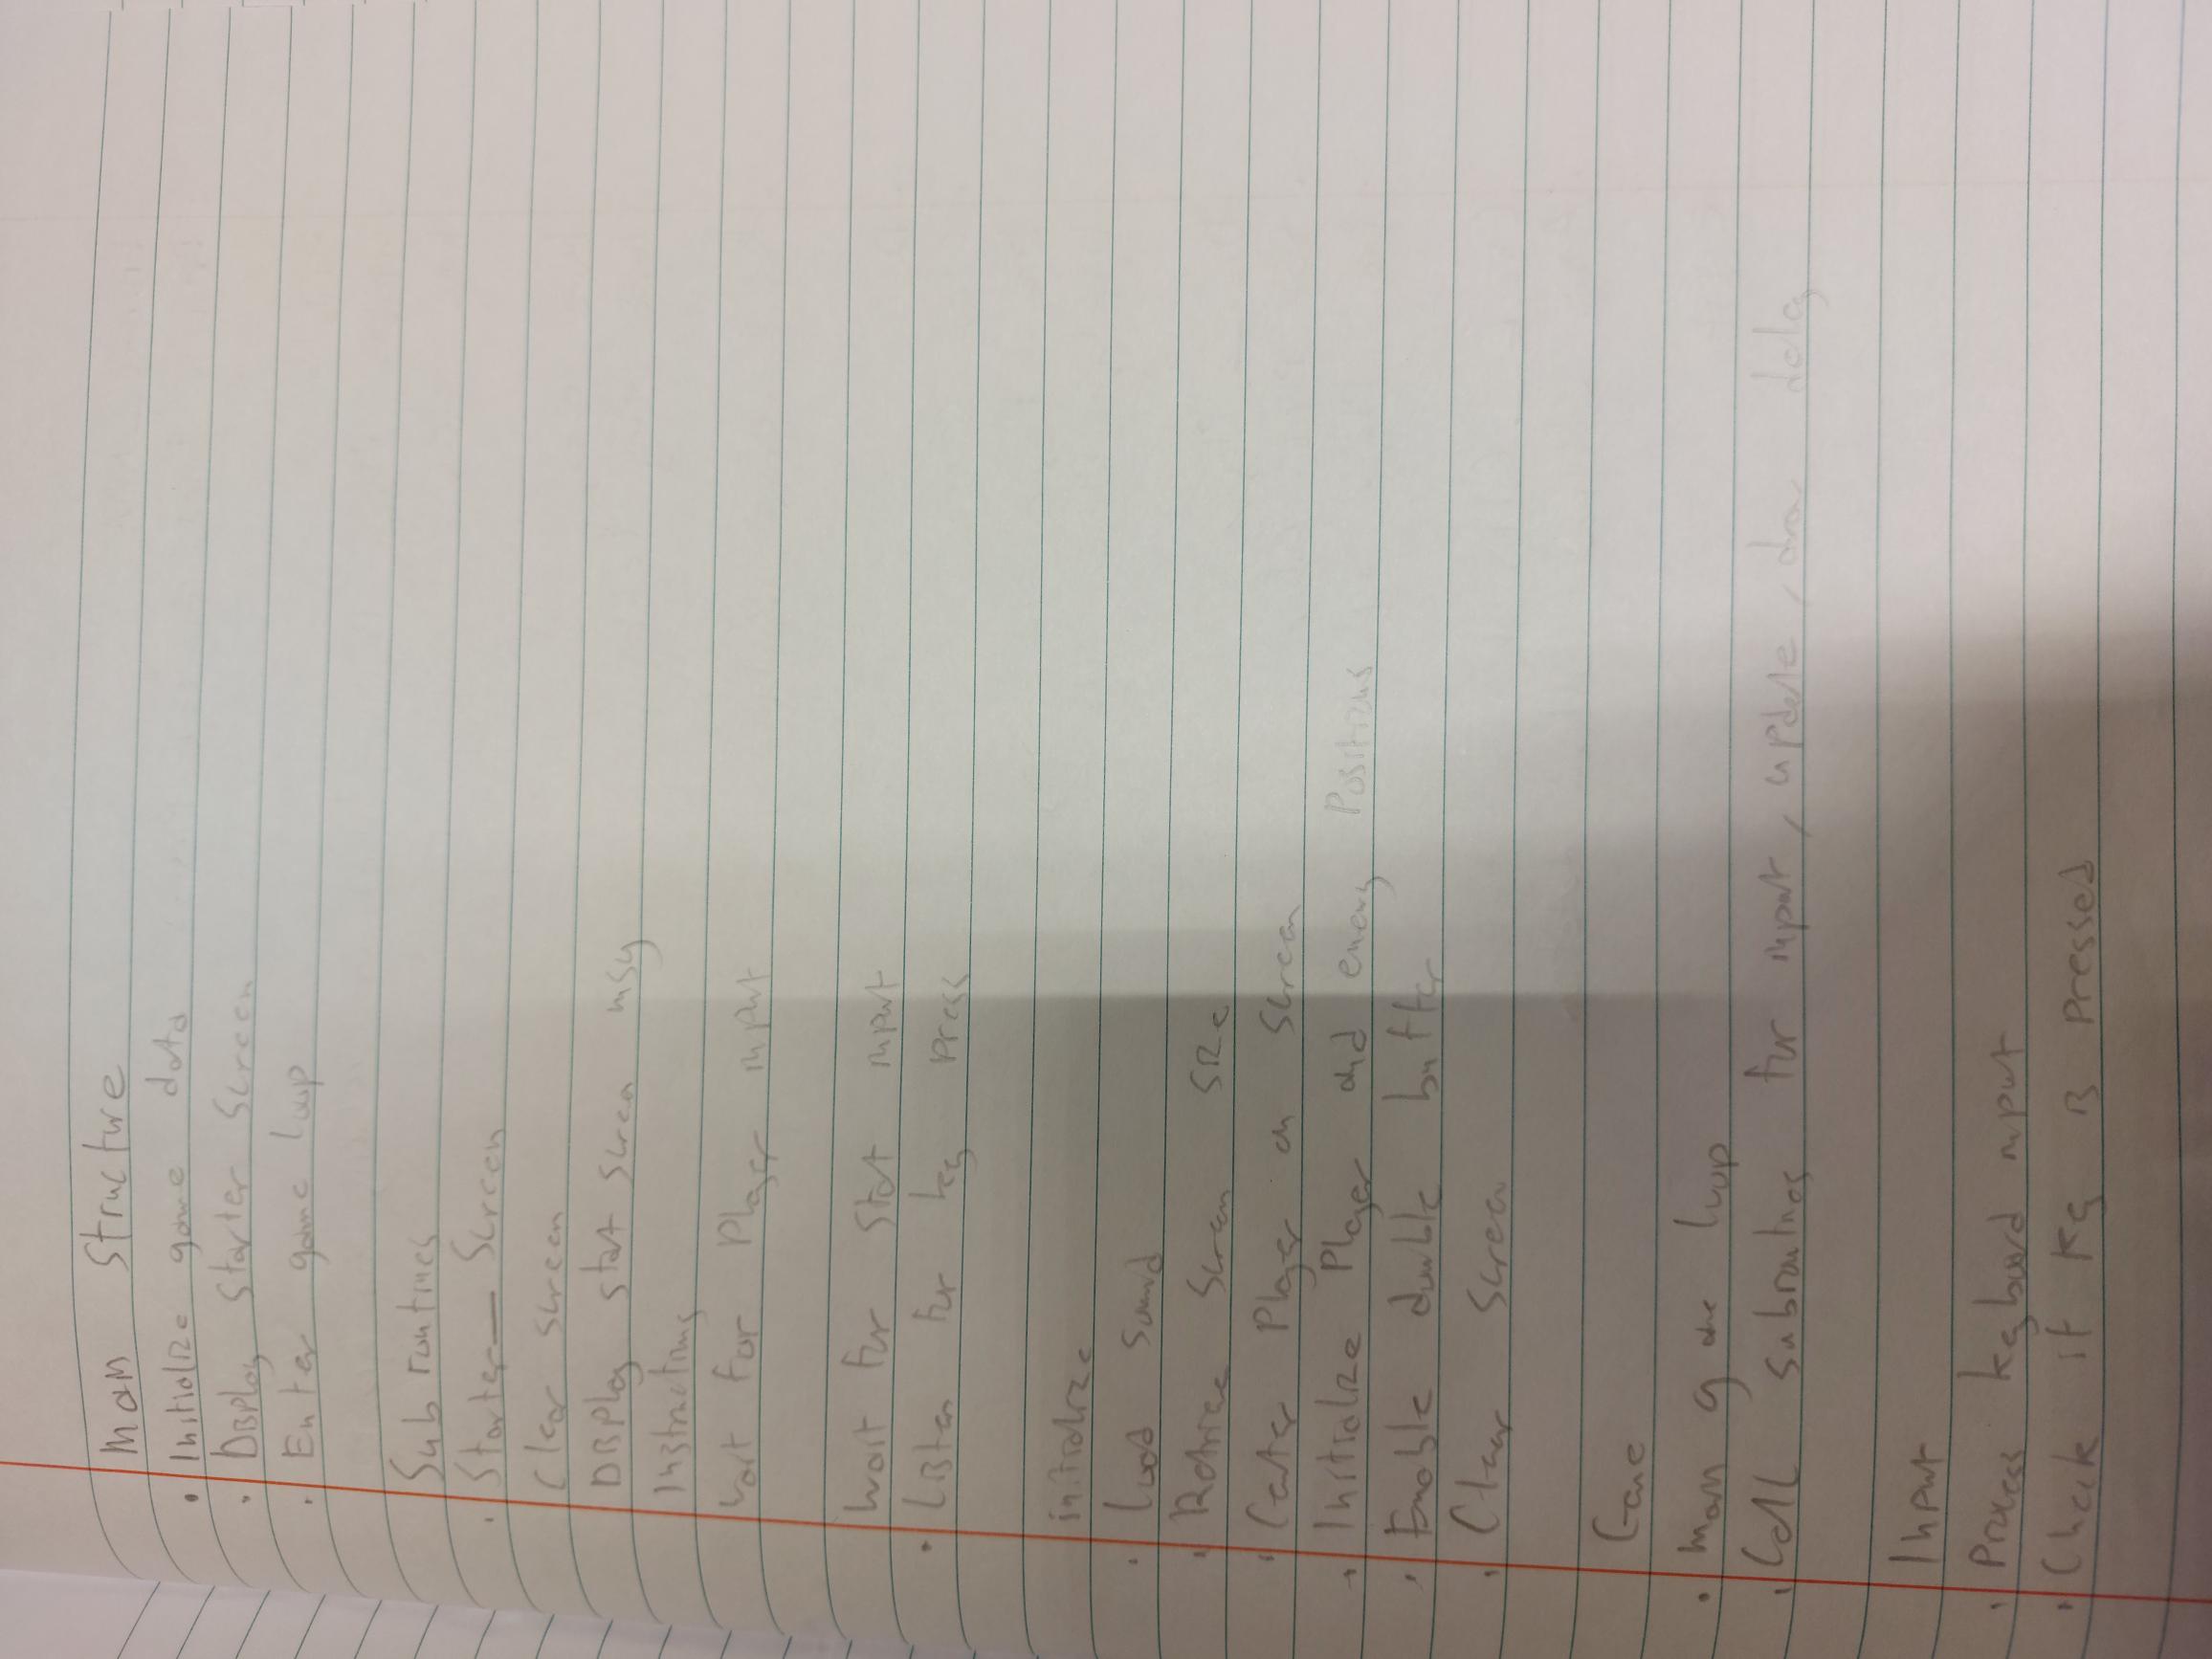 Main Structure
• Initialize game data
• Display Starter Screen
• Enter game loop
Subroutines
• Starter_Screen
Clear screen
Display start screen msg
Instructions
Wait for Player input
Wait for Start input
• Listen for key press
initialize
• Load sound
• Retrieve Screen Size
• Center Player on Screen
• Initialize Player and enemy Positions
• Enable double buffer
• Clear Screen
Game
• Main game loop
• Call subroutines for input, update, draw delay
Input
• Process keyboard input
• Check if key is pressed